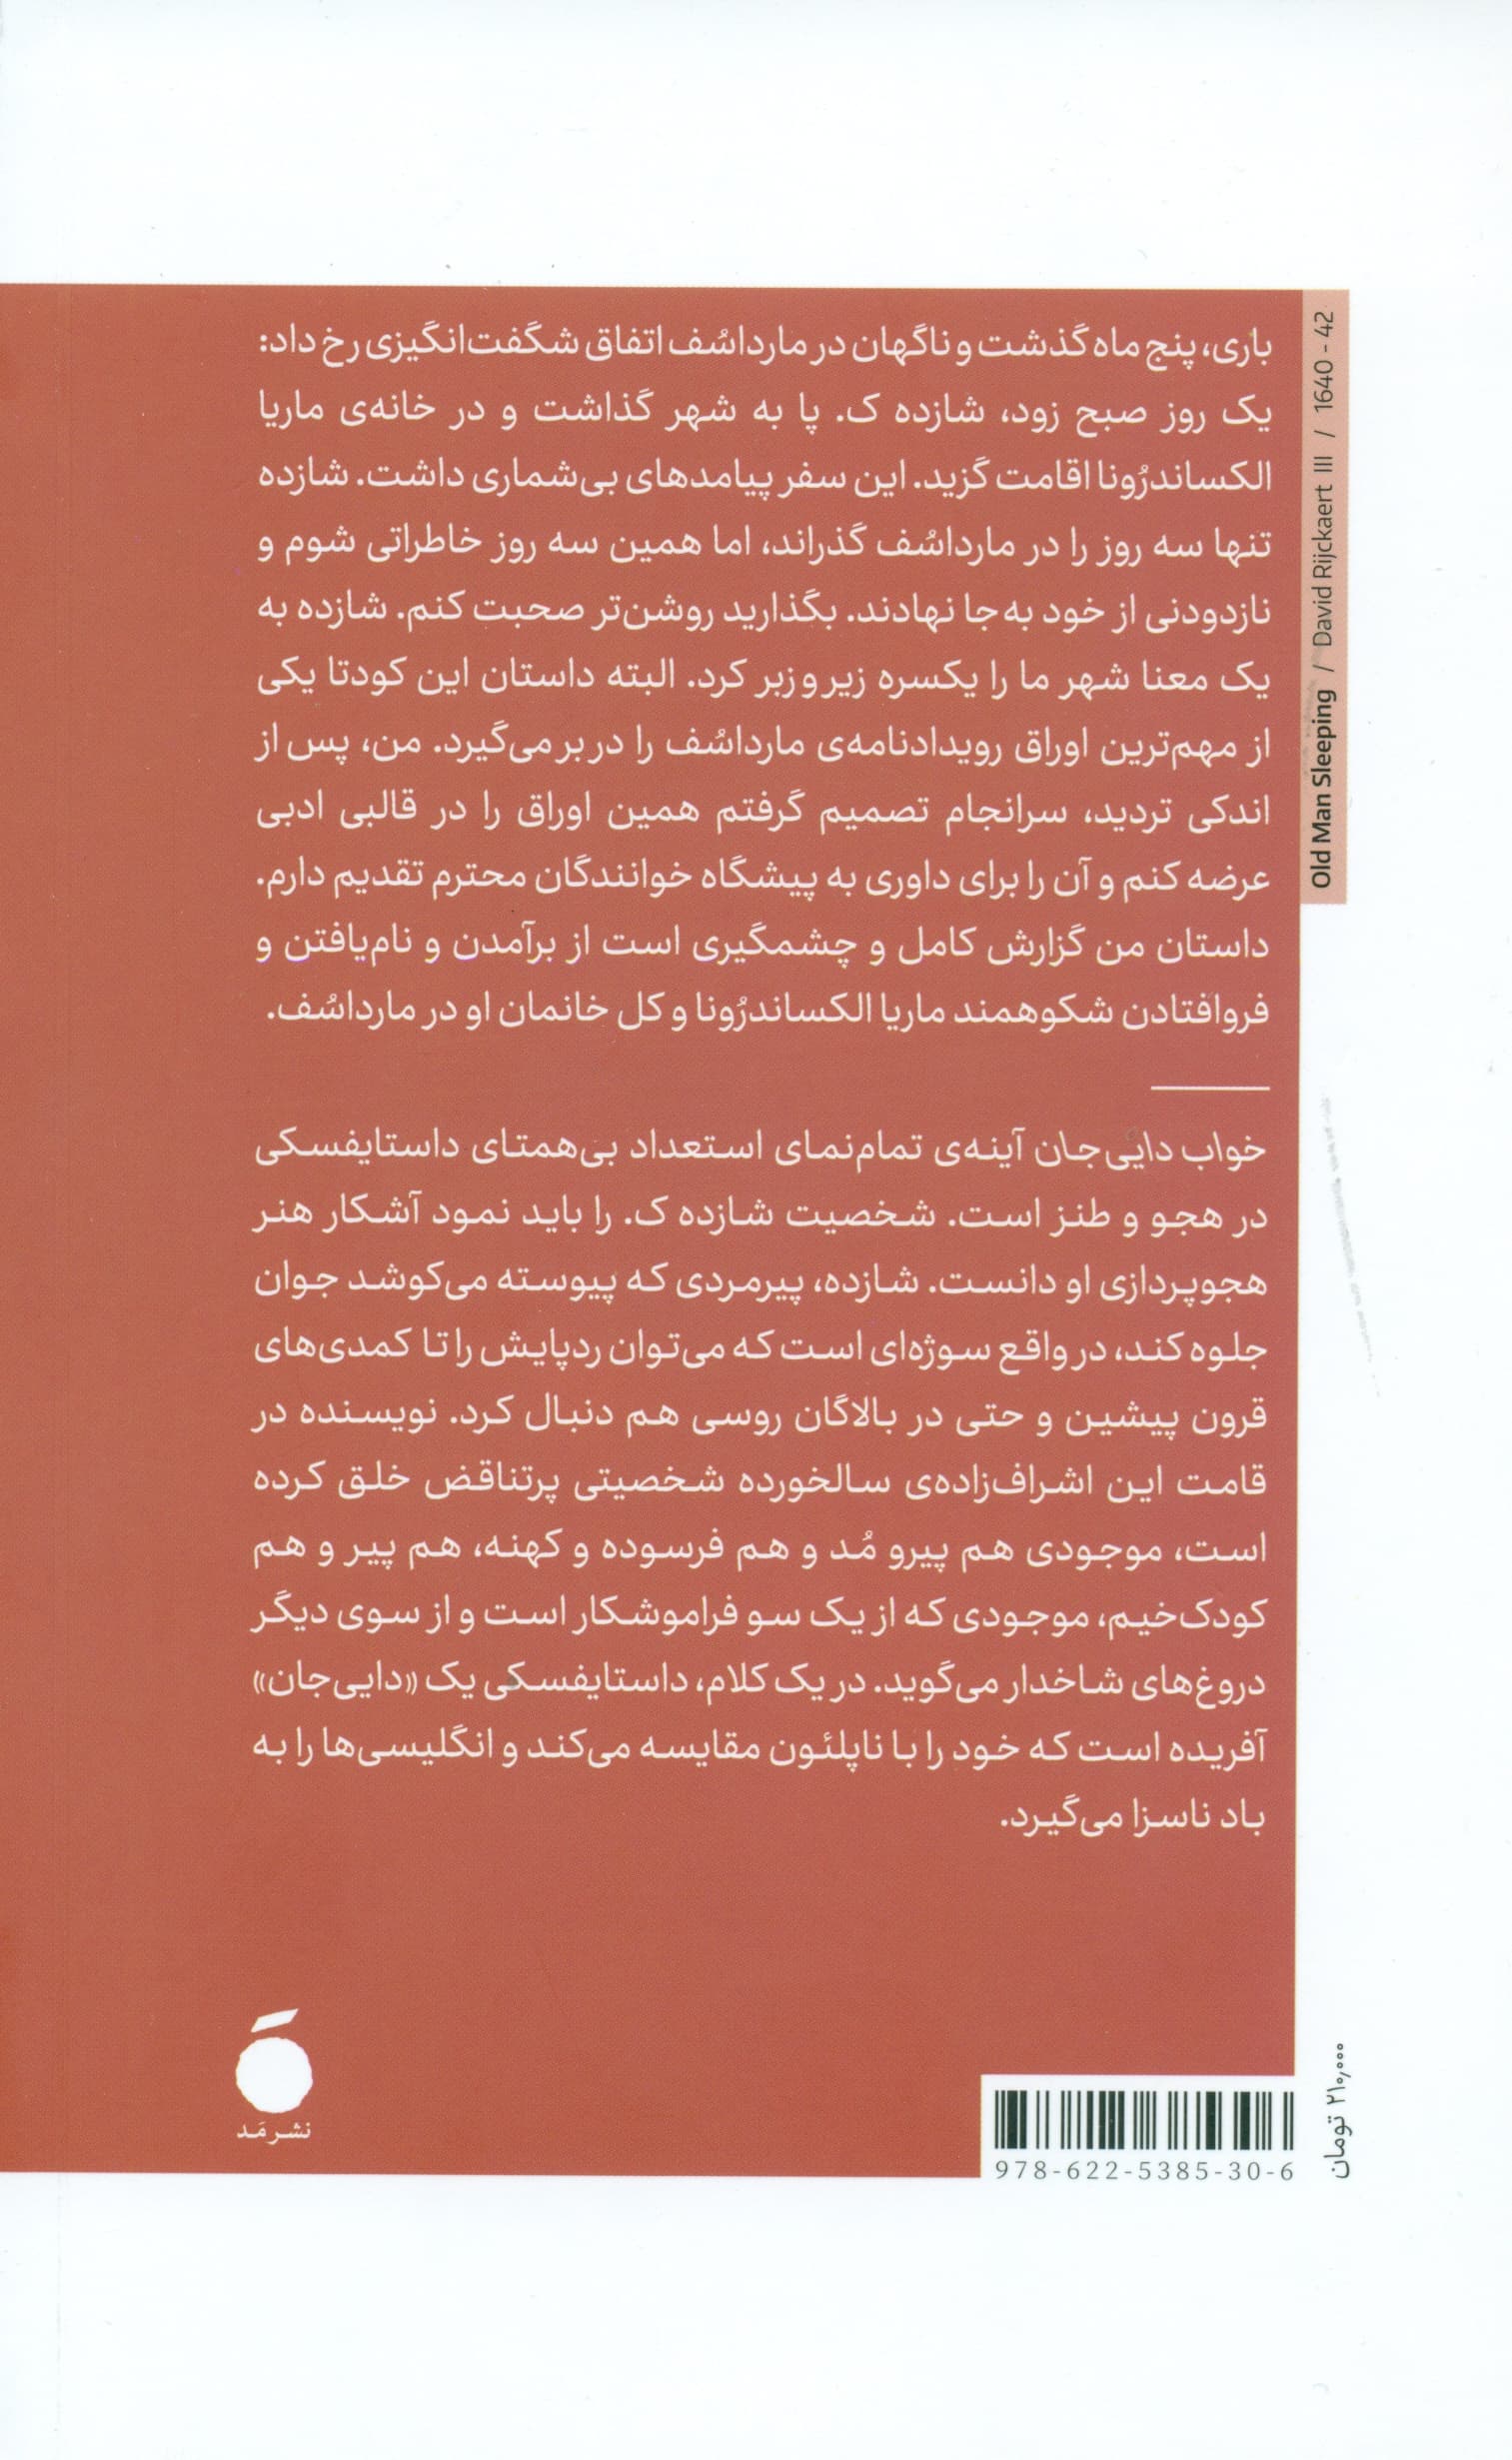 باری، پنج ماه گذشت و ناگهان در مارداسُف اتفاق شگفت‌انگیزی رخ داد:
یک روز صبح زود، شازده ک. پا به شهر گذاشت و در خانه‌ی ماریا
الکساندرُونا اقامت گزید. این سفر پیامدهای بی‌شماری داشت. شازده
تنها سه روز را در مارداسُف گذراند، اما همین سه روز خاطراتی شوم و
نازدودنی از خود به‌جا نهادند. بگذارید روشن‌تر صحبت کنم. شازده به
یک معنا شهر ما را یکسره زیر و زبر کرد. البته داستان این کودتا یکی
از مهم‌ترین اوراق رویدادنامه‌ی مارداسُف را در بر می‌گیرد. من، پس از
اندکی تردید، سرانجام تصمیم گرفتم همین اوراق را در قالبی ادبی
عرضه کنم و آن را برای داوری به پیشگاه خوانندگان محترم تقدیم دارم.
داستان من گزارش کامل و چشمگیری است از برآمدن و نام‌یافتن و
فروافتادن شکوهمند ماریا الکساندرُونا و کل خانمان او در مارداسُف.
خواب دایی‌جان آینه‌ی تمام‌نمای استعداد بی‌همتای داستایفسکی
در هجو و طنز است. شخصیت شازده ک. را باید نمود آشکار هنر
هجوپردازی او دانست. شازده، پیرمردی که پیوسته می‌کوشد جوان
جلوه کند، در واقع سوژه‌ای است که می‌توان ردپایش را تا کمدی‌های
قرون پیشین و حتی در بالاگان روسی هم دنبال کرد. نویسنده در
قامت این اشراف‌زاده‌ی سالخورده شخصیتی پرتناقض خلق کرده
است، موجودی هم پیرو مُد و هم فرسوده و کهنه، هم پیر و هم
کودک‌خیم، موجودی که از یک سو فراموشکار است و از سوی دیگر
دروغ‌های شاخدار می‌گوید. در یک کلام، داستایفسکی یک «دایی‌جان»
آفریده است که خود را با ناپلئون مقایسه می‌کند و انگلیسی‌ها را به
باد ناسزا می‌گیرد.
Old Man Sleeping / David Rijckaert III / 1640 - 42
نشر مَد
978-622-5385-30-6
۲۱۰٫۰۰۰ تومان